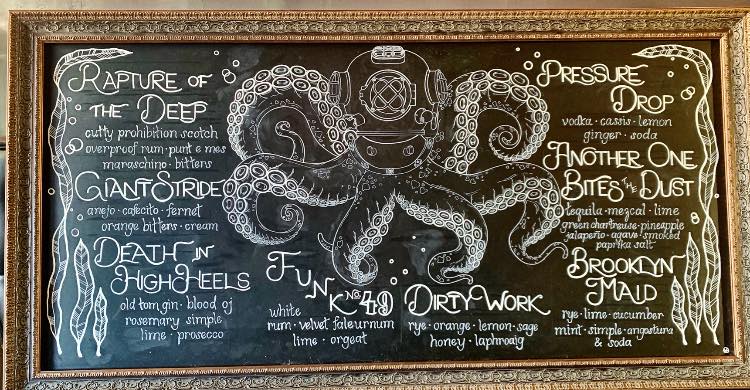 RAPTURE OF
THE DEEP
cutty prohibition scotch
overproof rum · punt e mes
maraschino · bitters
GIANT STRIDE
anejo · cafecito · fernet
orange bitters · cream
DEATH IN
HIGH HEELS
old tom gin · blood oj
rosemary simple
lime · prosecco
FUNK NO. 49
white
rum · velvet falernum
lime · orgeat
DIRTY WORK
rye · orange · lemon · sage
honey · laphroaig
PRESSURE
DROP
vodka · cassis · lemon
ginger · soda
ANOTHER ONE
BITES THE DUST
tequila · mezcal · lime
green chartreuse · pineapple
jalapeño · agave · smoked
paprika salt
BROOKLYN
MAID
rye · lime · cucumber
mint · simple · angostura
& soda